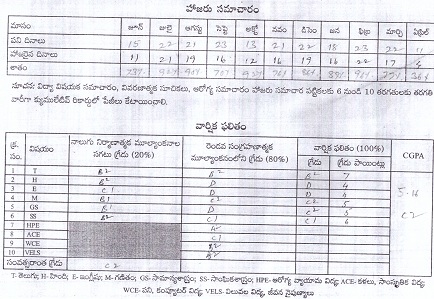 హాజరు సమాచారం
మాసం జూన్ జులై ఆగస్టు సెప్టె అక్టో నవం డిసెం జన ఫిబ్రు మార్చి ఏప్రిల్
పని దినాలు 15 22 21 23 13 21 22 18 23 22 11
హాజరైన దినాలు 11 21 19 16 12 16 19 16 22 17 4
శాతం
సూచన: విద్యా విషయక సమాచారం, వివరణాత్మక సూచికలు, ఆరోగ్య సమాచారం హాజరు సమాచార పట్టికలకు 6 నుండి 10 తరగతులకు తరగతి
వారీగా క్యుములేటివ్ రికార్డులో పేజీలు కేటాయించాలి.
వార్షిక ఫలితం
క్ర. సం. విషయం నాలుగు నిర్మాణాత్మక మూల్యాంకనాల సగటు గ్రేడు (20%) రెండవ సంగ్రహణాత్మక మూల్యాంకనంలోని గ్రేడు (80%) వార్షిక ఫలితం (100%) CGPA
గ్రేడు గ్రేడు పాయింట్లు
1 T B2 B2 B2 7
2 H B2 D D 4
3 E C1 D D 4
4 M B1 C2 C2 5
5 GS B1 C2 5
6 SS C1 C1 6
7 HPE
8 ACE
9 WCE C1
10 VELS
సంవత్సరాంత గ్రేడు C2
C2
T-తెలుగు; H-హిందీ; E-ఇంగ్లీషు; M-గణితం; GS-సామాన్యశాస్త్రం; SS-సాంఘికశాస్త్రం; HPE-ఆరోగ్య వ్యాయామ విద్య; ACE-కళలు, సాంస్కృతిక విద్య
WCE-పని, కంప్యూటర్ విద్య; VELS-విలువల విద్య, జీవన నైపుణ్యాలు